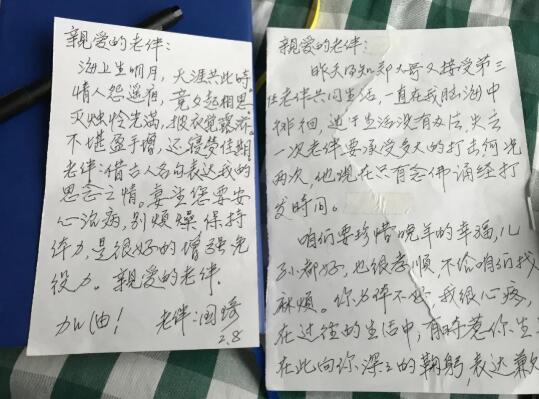 亲爱的老伴：
海上生明月，天涯共此时，
情人怨遥夜，竟夕起相思，
灭烛怜光满，披衣觉露滋，
不堪盈手增，还寝梦佳期
老伴：借古人名句表达我的
思念之情。妻生您要安
心治病，别烦燥保持
体力，是很好的增强免
役力。亲爱的老伴.
加油！ 老伴：国琦
2.8
亲爱的老伴：
昨天得知郑大哥又接受第三
任老伴共同生活，一直在我脑海中
徘徊，迫于生活没有办法，失去
一次老伴要承受多大的打击，何况
两次，他现在只有念佛诵经打
发时间。
咱们要珍惜晚年的幸福，儿
孙都好，也很孝顺，不给咱们找
麻烦。你身体不好 我很心疼，
在过往的生活中，有时惹你生
在此向你深深的鞠躬，表达歉